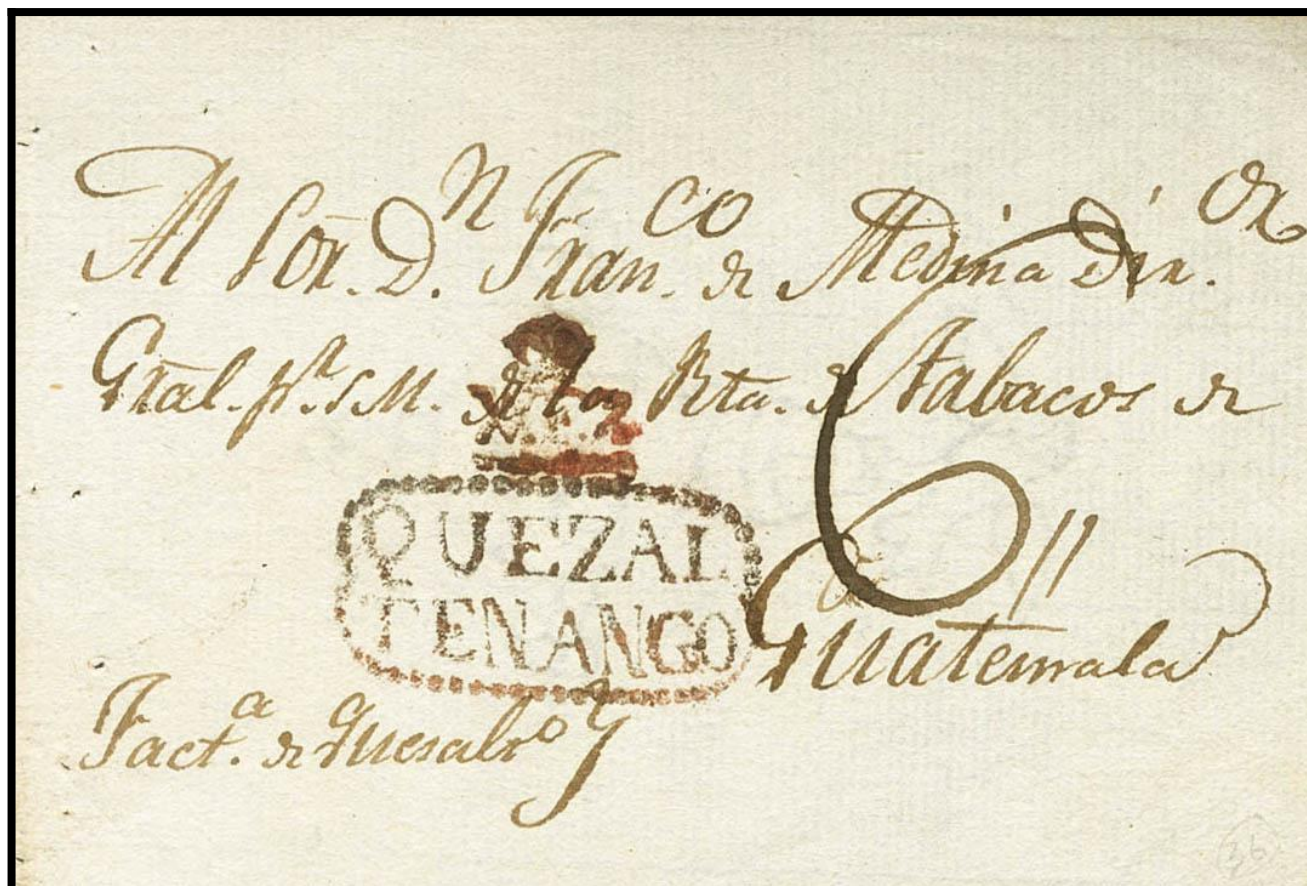 Al Sor. D.n Fran.co de Medina Dir.or
Gral. pr. S.M. de la Rta. de Tabacos de
QUEZAL
TENANGO
Guatemala
Fact.a de Quesalt.o
36